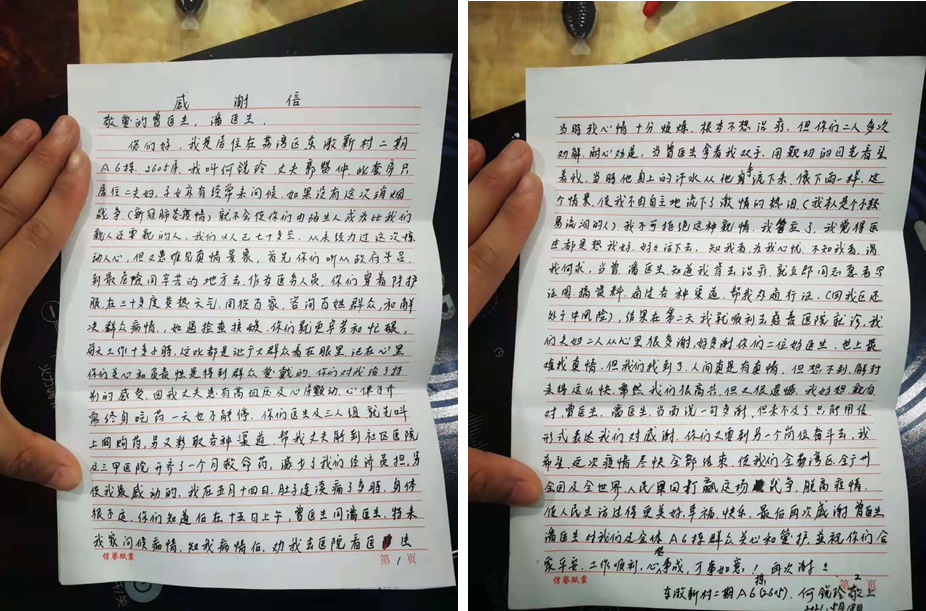 感谢信
敬爱的曾医生，潘医生，
你们好，我是居住在荔湾区东漖新村二期
A6栋，2605房，我叫何锐玲，丈夫郭赞仲，此套房只
居住二夫妇，子女亦有经常来问候，如果没有这次硝烟
战争（新冠肺炎疫情）就不会使你们由陌生人成为比我们
亲人还更亲的人，我们人已七十多岁，从未经历过这次惊
动人心，但又患难见真情景象，首先你们听从政府号召，
到最危险同辛苦的地方去，作为医务人员，你们穿着防护
服，在三十多度炎热天气，问候百家，咨询百姓群众，和解
决群众病情，如遇检查核酸，你们就更辛苦和忙碌，
每天工作十多小时，这些都是让广大群众看在眼里，记在心里
你们关心和是得到群众爱戴的，你们对我给了特
别的感受，因我丈夫患有高血压及心房颤动，心律不齐
需终身吃药一天也不能停，你们医生及三人组，就先叫
上网购药，另又采取各种渠道，帮我丈夫解到社区医院
及三甲医院开齐了一个月救命药，减少了我们经济负担，另
使我最感动的，我在五月十四日，肚子连续痛了多时，身体
很不适，你们知道后在十五日上午，曾医生同潘医生，特来
我家问候病情，知我病情后，劝我去医院看医生
信誉纸业
第1页
当时我心情十分烦燥，根本不想治疗，但你们二人多次
劝解，耐心劝道，当曾医生拿着我双手，用亲切的目光看望
着我，当时他身上的汗水从他身手流下来，像下雨一样，这
个情景，使我不自主地流下了激情的热泪（我本是个不轻
易流泪的），我不可拒绝这种亲情，我答应了，我觉得医
生都是想我好，好好活下去，知我者，为我心忧，不知我者，谓
我何求，当曾、潘医生知道我肯去治疗，就立即同知委看写
证明，搞资料，通过各种渠道，帮我办通行证，（因我区还
处于中风险），结果在第二天我就顺利去慈善医院就诊，我
们夫妇二人从心里很多谢，好多谢你们二位好医生，世上最
难找真情，但我们找到了，人间真是有真情，但想不到，解封
来得这么快，当然我们很高兴，但又很遗憾，我好想亲自
对，曾医生，潘医生，当面说一句多谢，但来不及了，只能用信
形式表达我们对感谢，你们又要到另一个岗位奋斗去，我
希望，这次疫情尽快全部结束，使我们全荔湾区，全广州
全国及全世界，人民早日打赢这场战争，脱离疫情，
使人民生活过得更美好，幸福，快乐，最后再次感谢曾医生
潘医生对我们及全体A6栋群众关心和爱护，祝你们合
家平安，工作顺利，心想事成，万事如意！再次谢！！
信誉纸业
第2页
东漖新村二期A6栋(2605)，何锐玲敬上
2021.5月18日